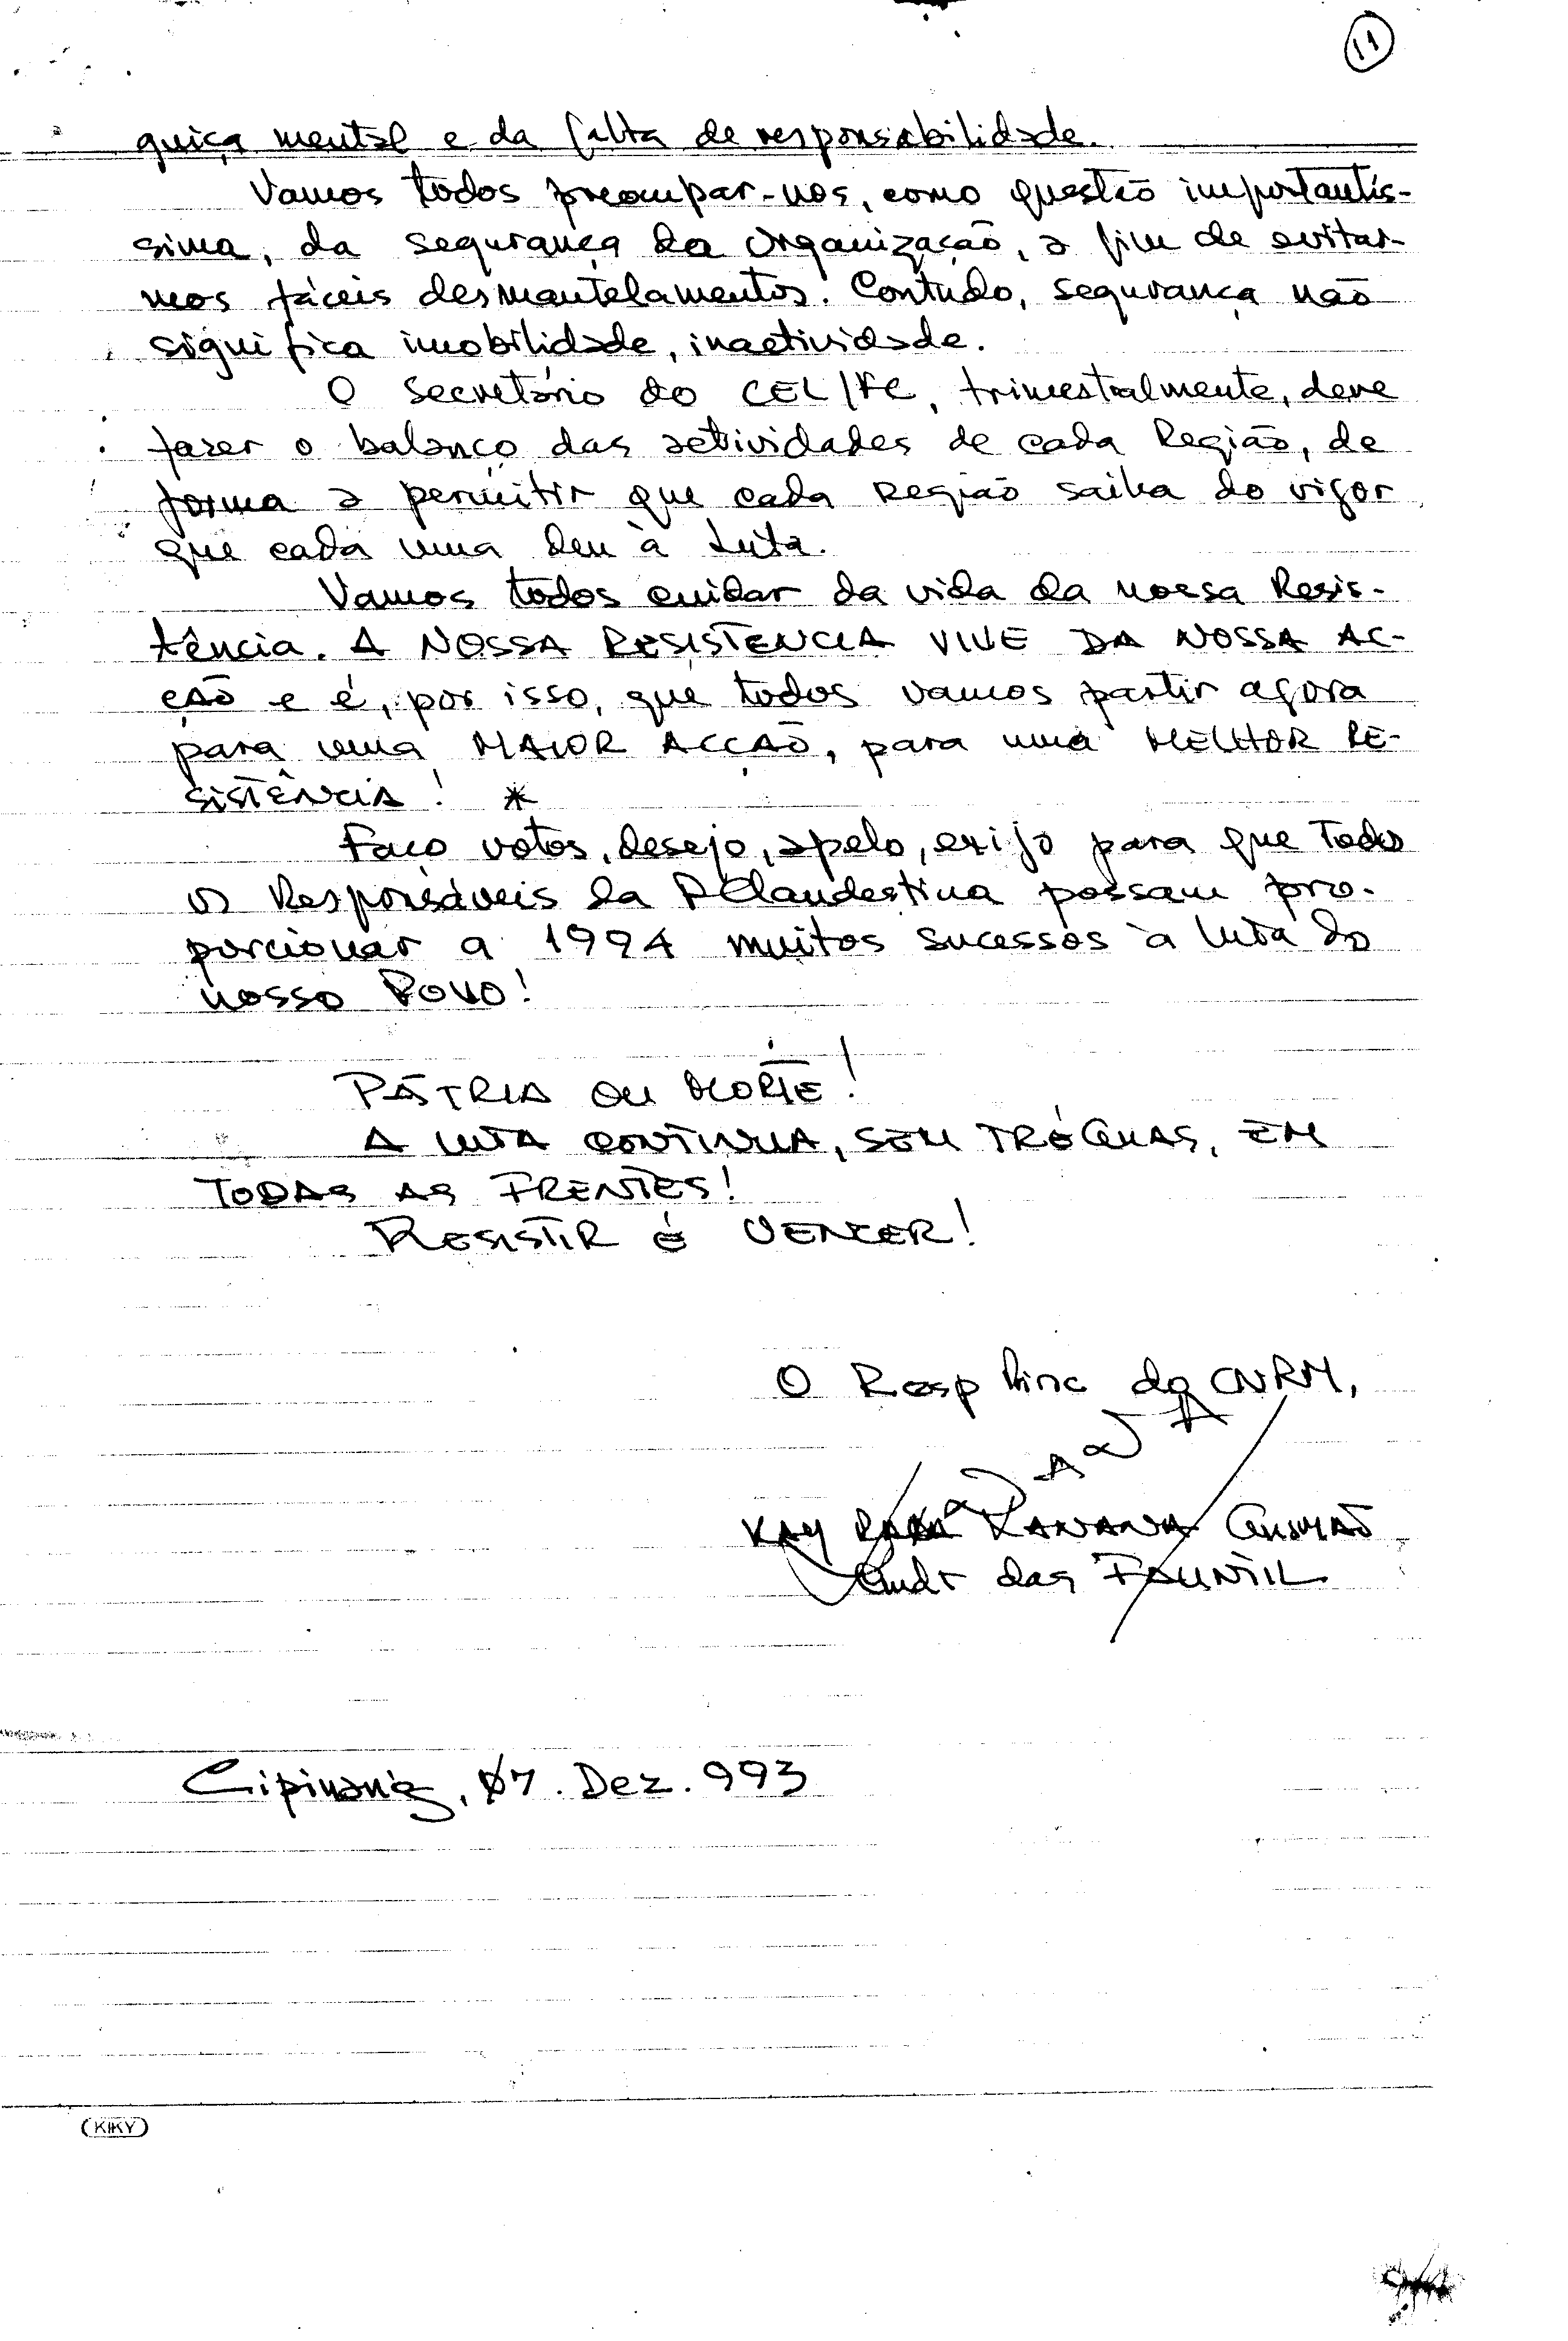 11
guiça mental e da falta de responsabilidade.
Vamos todos preocupar-nos, como questão importantís-
sima, da segurança da Organização, a fim de evitar-
mos fáceis desmantelamentos. Contudo, segurança não
significa imobilidade, inactividade.
O Secretário do CEL/FC, trimestralmente, deve
fazer o balanço das actividades de cada Região, de
forma a permitir que cada Região saiba do vigor
que cada uma deu à Luta.
Vamos todos cuidar da vida da nossa Resis-
tência. A NOSSA RESISTÊNCIA VIVE DA NOSSA AC-
ÇÃO e é, por isso, que todos vamos partir agora
para uma MAIOR ACÇÃO, para uma MELHOR RE-
SISTÊNCIA! *
Faço votos, desejo, apelo, exijo para que todos
os Responsáveis da Clandestina possam pro-
porcionar a 1994 muitos sucessos à luta do
nosso Povo!
PÁTRIA OU MORTE!
A LUTA CONTINUA, SEM TRÉGUAS, EM
TODAS AS FRENTES!
RESISTIR É VENCER!
O Resp Princ do CNRM,
KAY RALA XANANA GUSMÃO
Cmdt das FALINTIL
Cipinang, 07. Dez. 993
KIKY